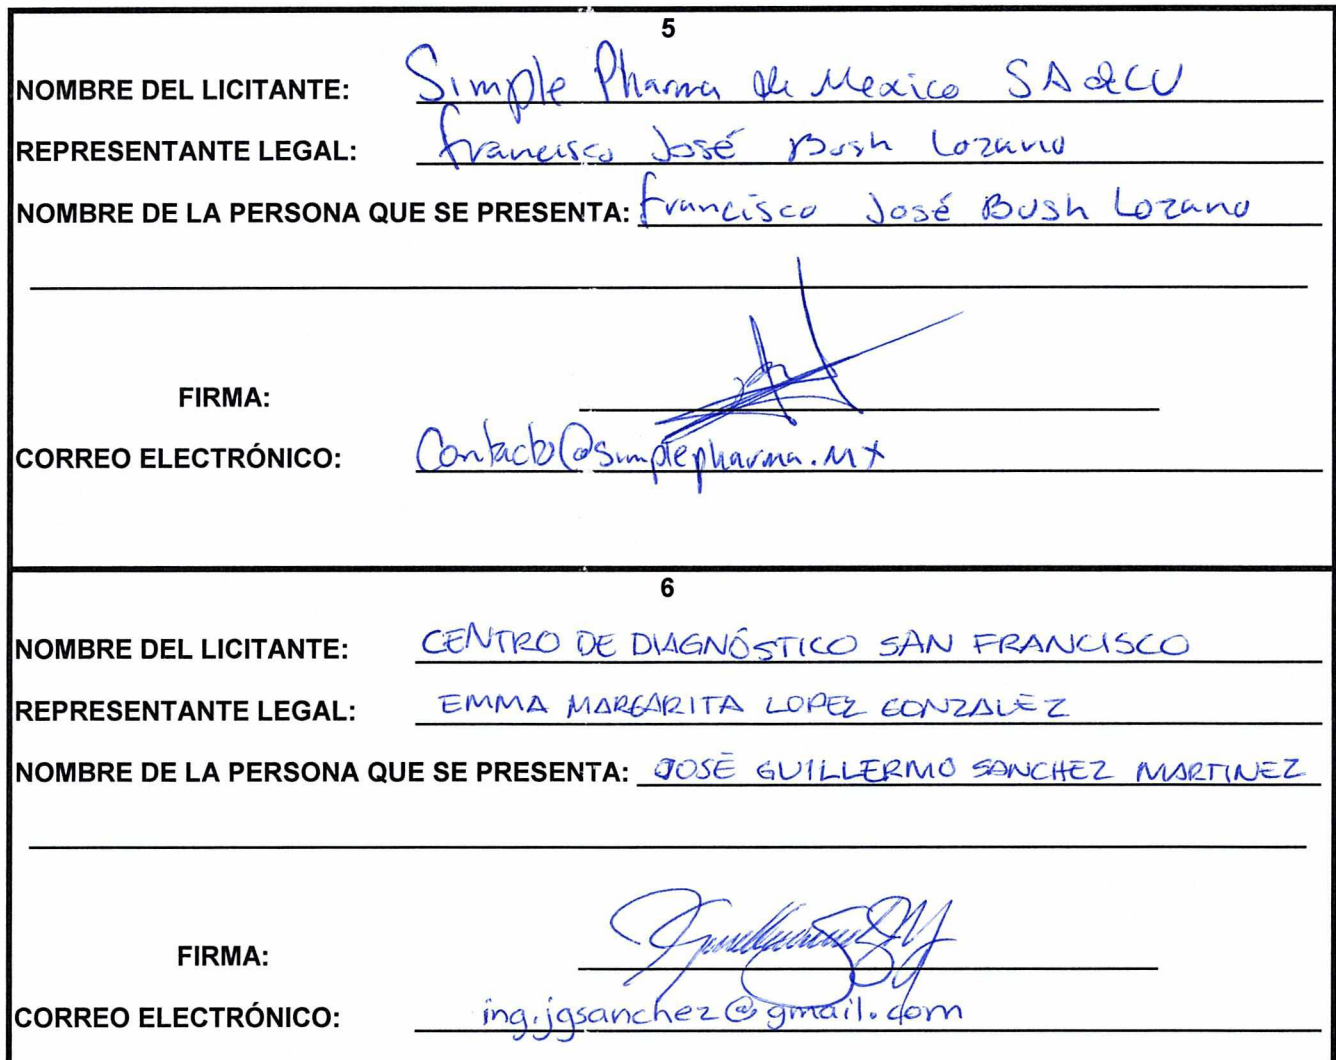 5
NOMBRE DEL LICITANTE: Simple Pharma de Mexico SA de CV
REPRESENTANTE LEGAL: Francisco José Bush Lozano
NOMBRE DE LA PERSONA QUE SE PRESENTA: Francisco José Bush Lozano
FIRMA:
CORREO ELECTRÓNICO: Contacto@simplepharma.Mx
6
NOMBRE DEL LICITANTE: CENTRO DE DIAGNÓSTICO SAN FRANCISCO
REPRESENTANTE LEGAL: EMMA MARGARITA LOPEZ GONZALEZ
NOMBRE DE LA PERSONA QUE SE PRESENTA: JOSÉ GUILLERMO SANCHEZ MARTINEZ
FIRMA:
CORREO ELECTRÓNICO: ing.jgsanchez@gmail.com